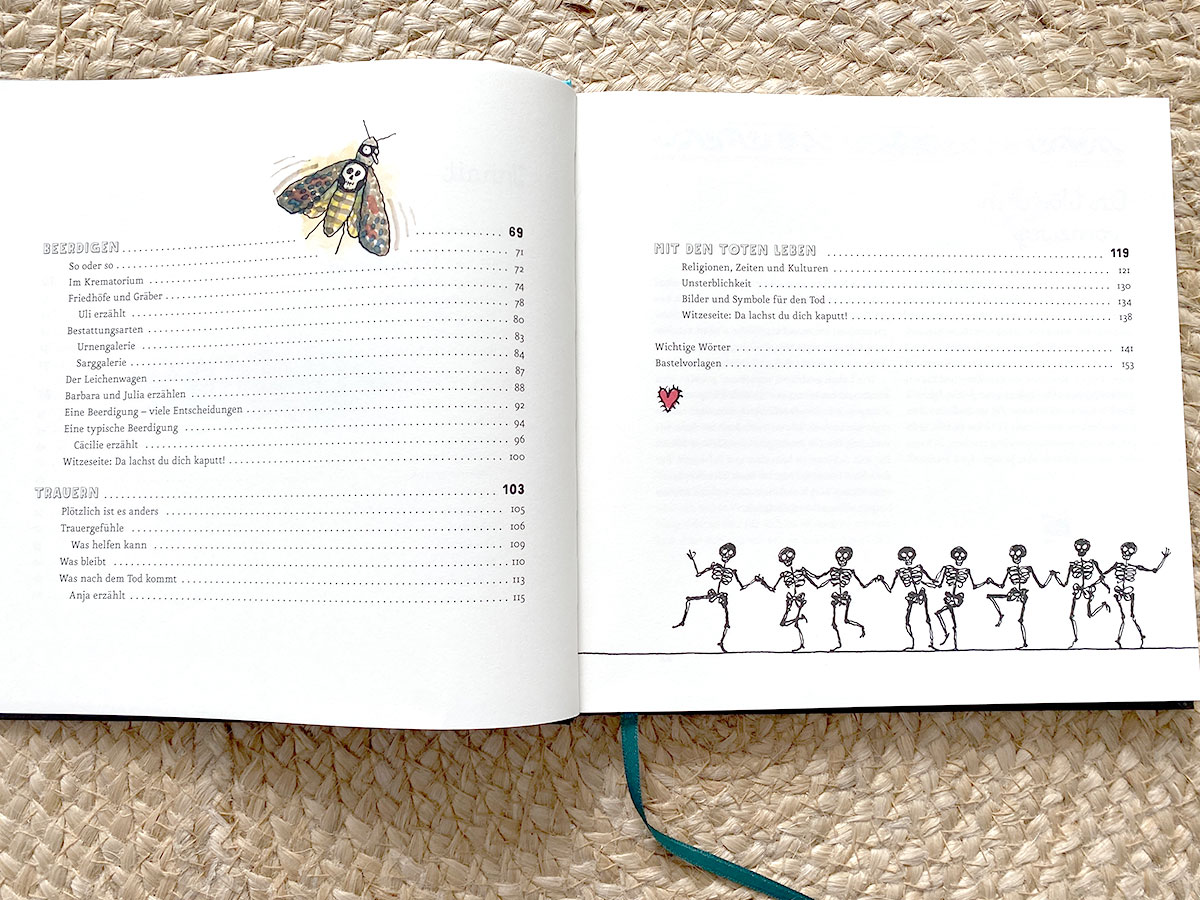 BEERDIGEN ..... 69
So oder so ..... 71
Im Krematorium ..... 72
Friedhöfe und Gräber ..... 74
Uli erzählt ..... 78
Bestattungsarten ..... 80
Urnengalerie ..... 83
Sarggalerie ..... 84
Der Leichenwagen ..... 87
Barbara und Julia erzählen ..... 88
Eine Beerdigung – viele Entscheidungen ..... 92
Eine typische Beerdigung ..... 94
Cäcilie erzählt ..... 96
Witzeseite: Da lachst du dich kaputt! ..... 100
TRAUERN ..... 103
Plötzlich ist es anders ..... 105
Trauergefühle ..... 106
Was helfen kann ..... 109
Was bleibt ..... 110
Was nach dem Tod kommt ..... 113
Anja erzählt ..... 115
MIT DEN TOTEN LEBEN ..... 119
Religionen, Zeiten und Kulturen ..... 121
Unsterblichkeit ..... 130
Bilder und Symbole für den Tod ..... 134
Witzeseite: Da lachst du dich kaputt! ..... 138
Wichtige Wörter ..... 141
Bastelvorlagen ..... 153